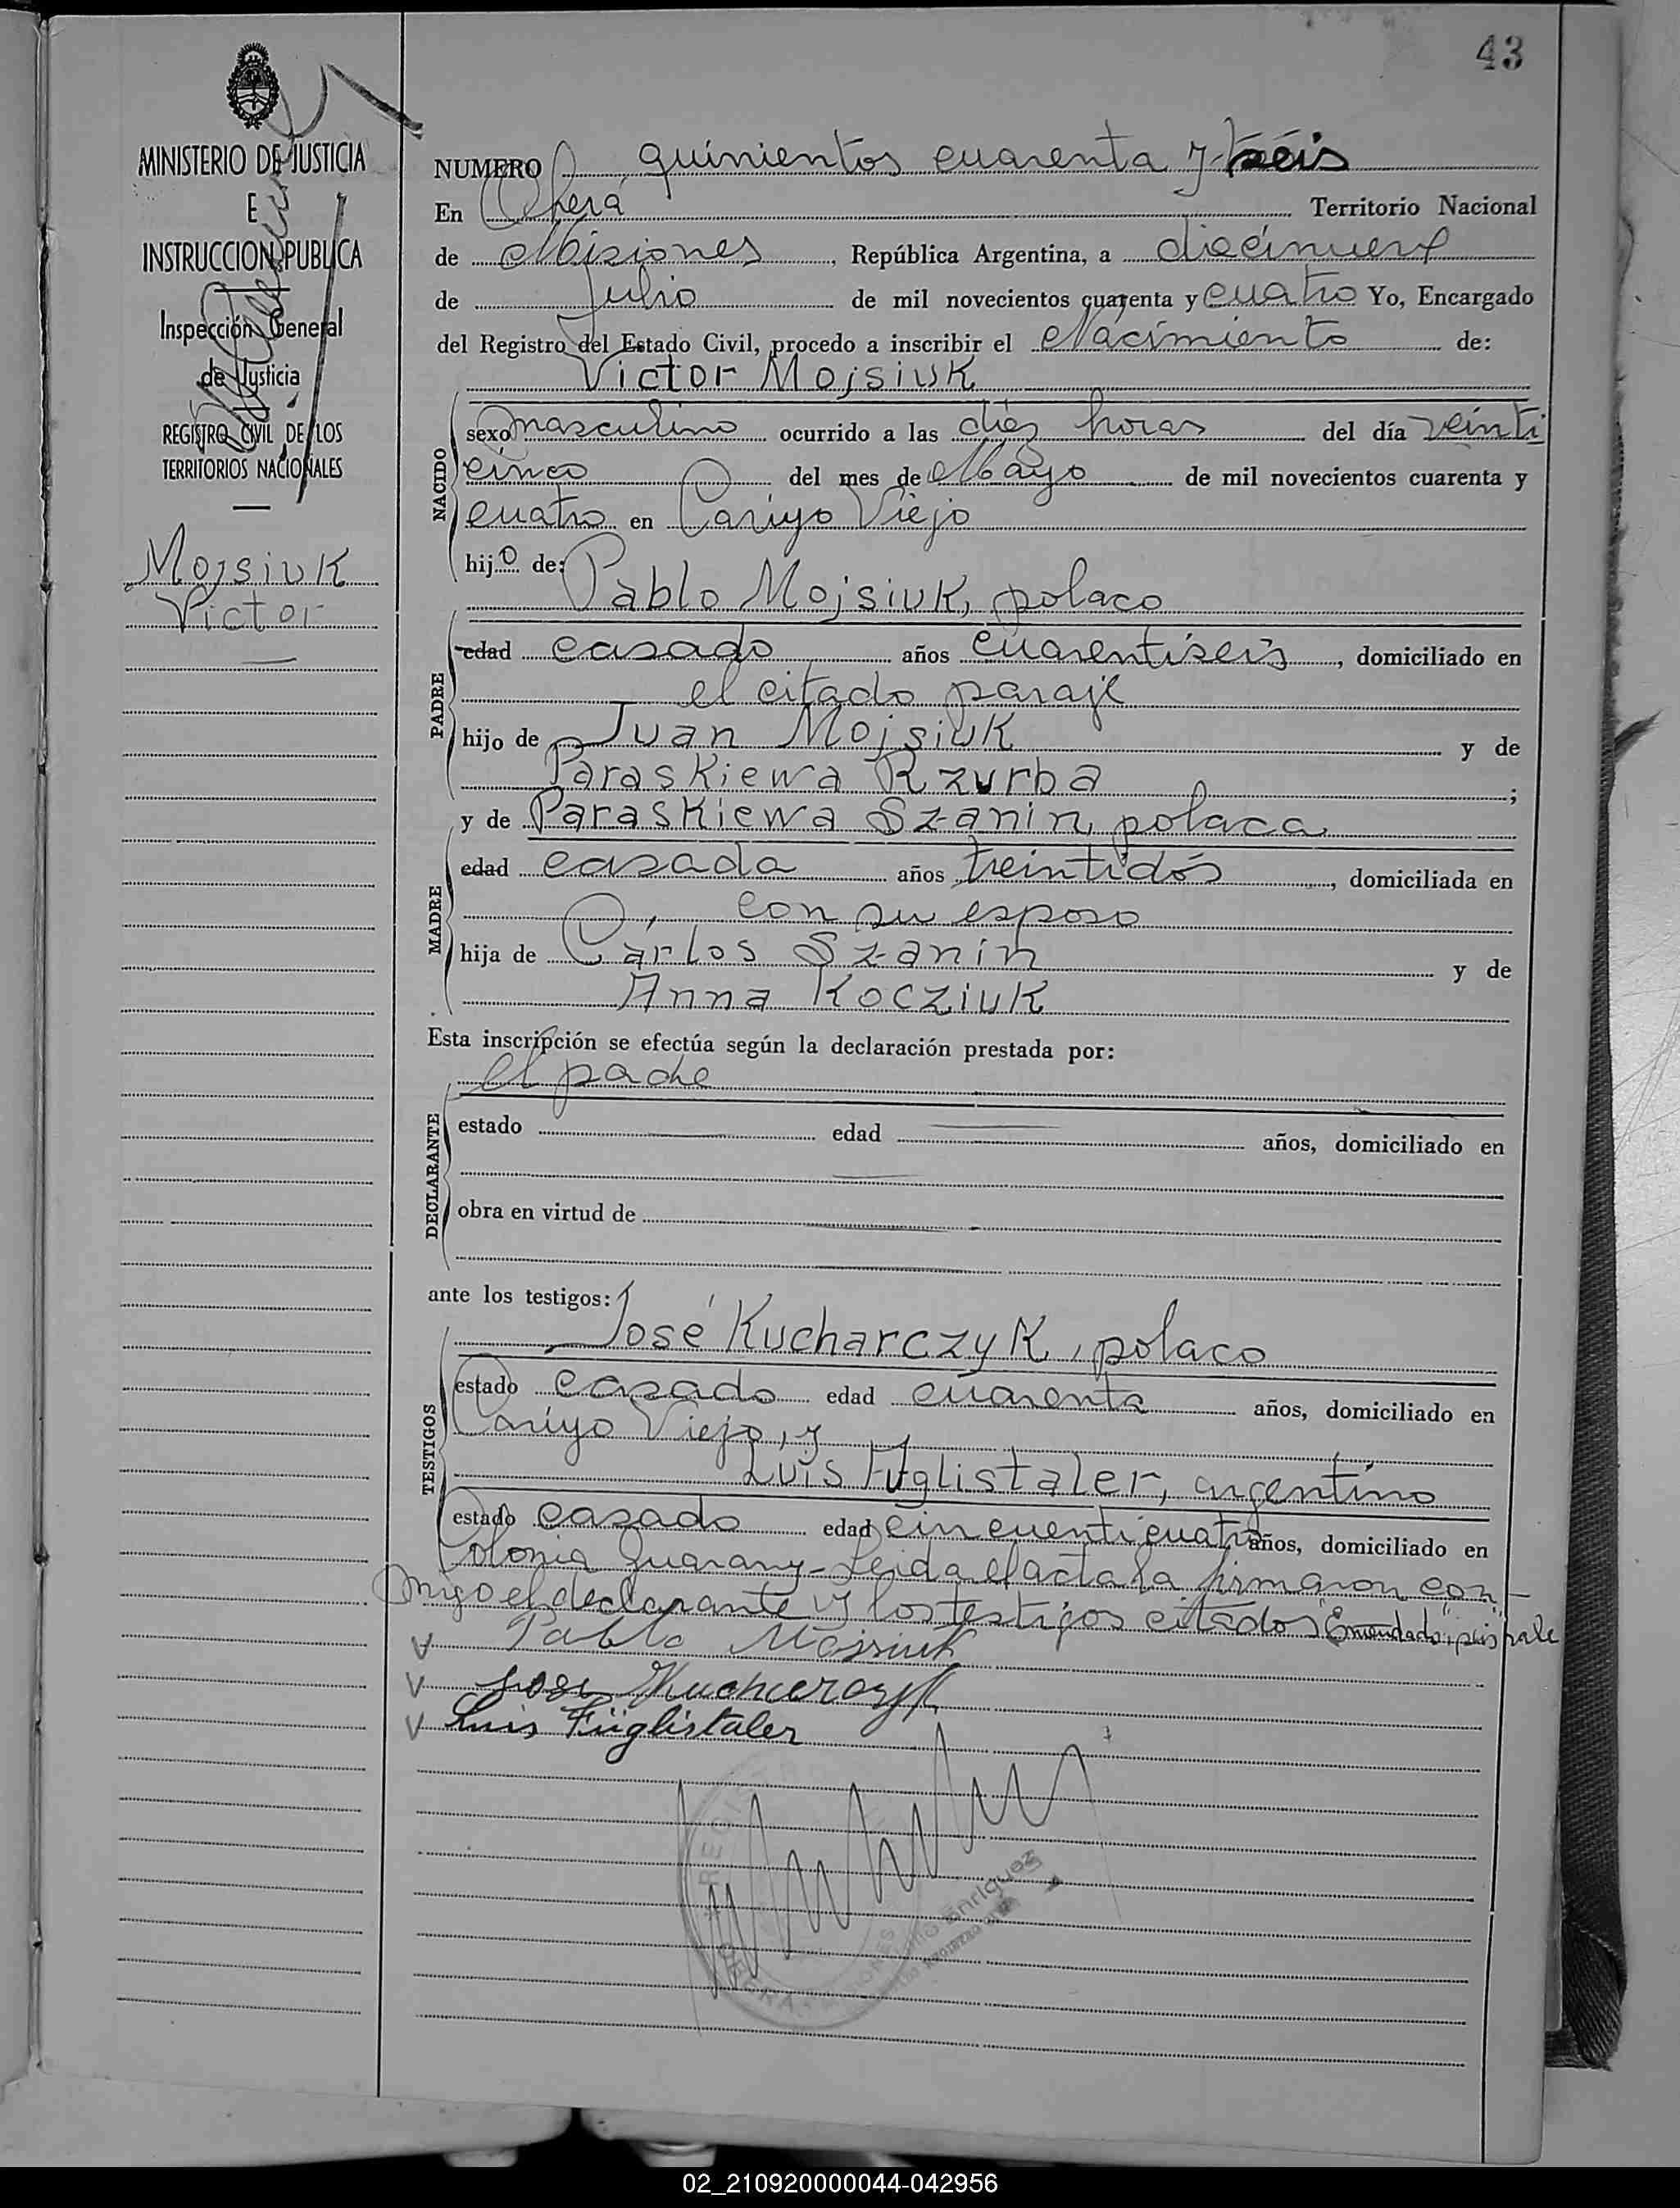 43
MINISTERIO DE JUSTICIA
E
INSTRUCCION PUBLICA
Inspección General
de Justicia
REGISTRO CIVIL DE LOS
TERRITORIOS NACIONALES
Mojsiuk
Victor
NUMERO quinientos cuarenta y seis
En Oberá Territorio Nacional
de Misiones, República Argentina, a diecinueve
de Julio de mil novecientos cuarenta y cuatro Yo, Encargado
del Registro del Estado Civil, procedo a inscribir el Nacimiento de:
Victor Mojsiuk
NACIDO
sexo masculino ocurrido a las diez horas del día veinti
cinco del mes de Mayo de mil novecientos cuarenta y
cuatro en Cariyo Viejo
hijo de:
Pablo Mojsiuk, polaco
PADRE
edad casado años cuarentiseis, domiciliado en
el citado paraje
hijo de Juan Mojsiuk y de
Paraskiewa Rzurba;
y de Paraskiewa Szanin, polaca
MADRE
edad casada años treintidós, domiciliada en
con su esposo
hija de Cárlos Szanin y de
Anna Kocziuk
Esta inscripción se efectúa según la declaración prestada por:
el padre
DECLARANTE
estado edad años, domiciliado en
obra en virtud de
ante los testigos:
José Kucharczyk, polaco
TESTIGOS
estado casado edad cuarenta años, domiciliado en
Cariyo Viejo, y
Luis Fuglistaler, argentino
estado casado edad cincuenticuatro años, domiciliado en
Colonia Guarany - Leida el acta la firmaron con-
migo el declarante y los testigos citados "Emendado: seis" vale
Pablo Mojsiuk
Jose Kucharczyk
Luis Füglistaler
REGISTRO
Enriquez
02_210920000044-042956